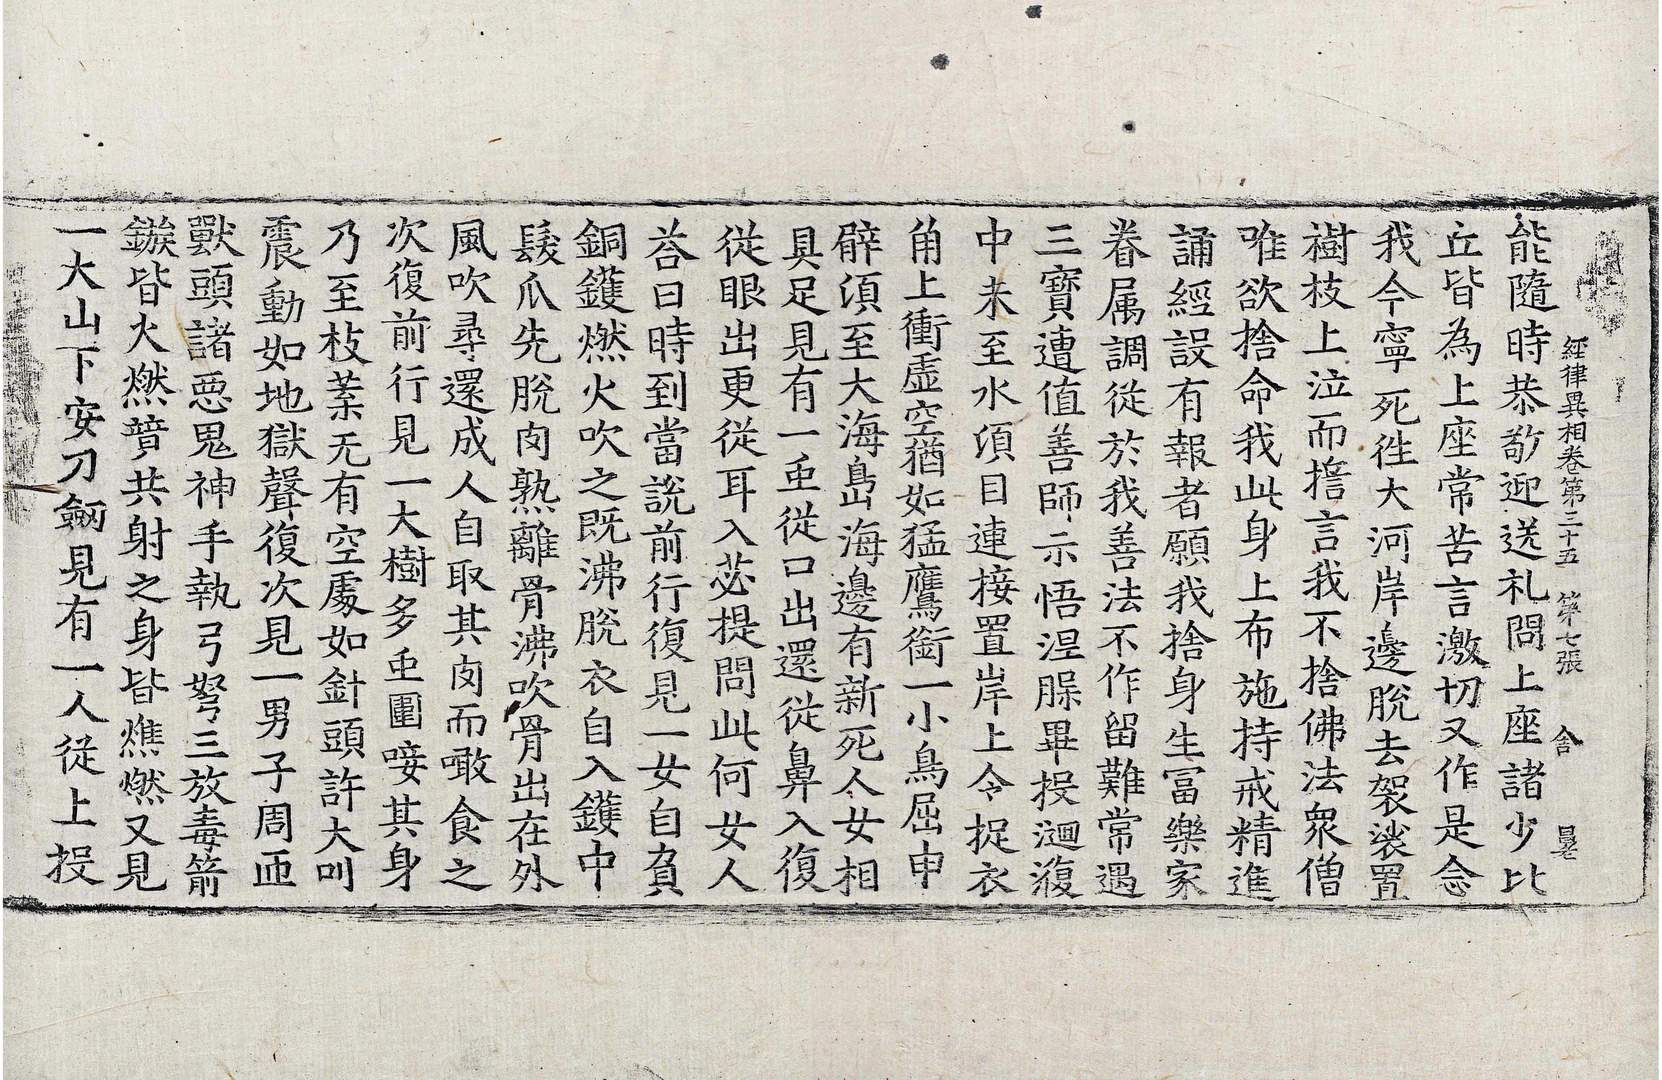 經律異相卷第三十五 第七張 舍
能隨時恭敬迎送礼問上座諸少比
丘皆為上座常苦言激切又作是念
我今寧死徃大河岸邊脫去袈裟置
樹枝上泣而擔言我不捨佛法眾僧
唯欲捨命我此身上布施持戒精進
誦經設有報者願我捨身生冨樂家
眷属調從於我善法不作留難常遇
三寶遭值善師示悟涅槃畢投洄澓
中未至水湏目連接置岸上令捉衣
角上衝虛空猶如猛鷹銜一小鳥屈申
臂湏至大海島海邊有新死人女相
具足見有一虫從口出還從鼻入復
從眼出更從耳入苾提問此何女人
荅曰時到當說前行復見一女自負
銅鑊燃火吹之既沸脫衣自入鑊中
髮爪先脫肉熟離骨沸吹骨出在外
風吹尋還成人自取其肉而噉食之
次復前行見一大樹多虫圍唼其身
乃至枝葉无有空處如針頭許大叫
震動如地獄聲復次見一男子周匝
獸頭諸惡鬼神手執弓弩三放毒箭
鏃皆火燃競共射之身皆燋燃又見
一大山下安刀劒見有一人從上投